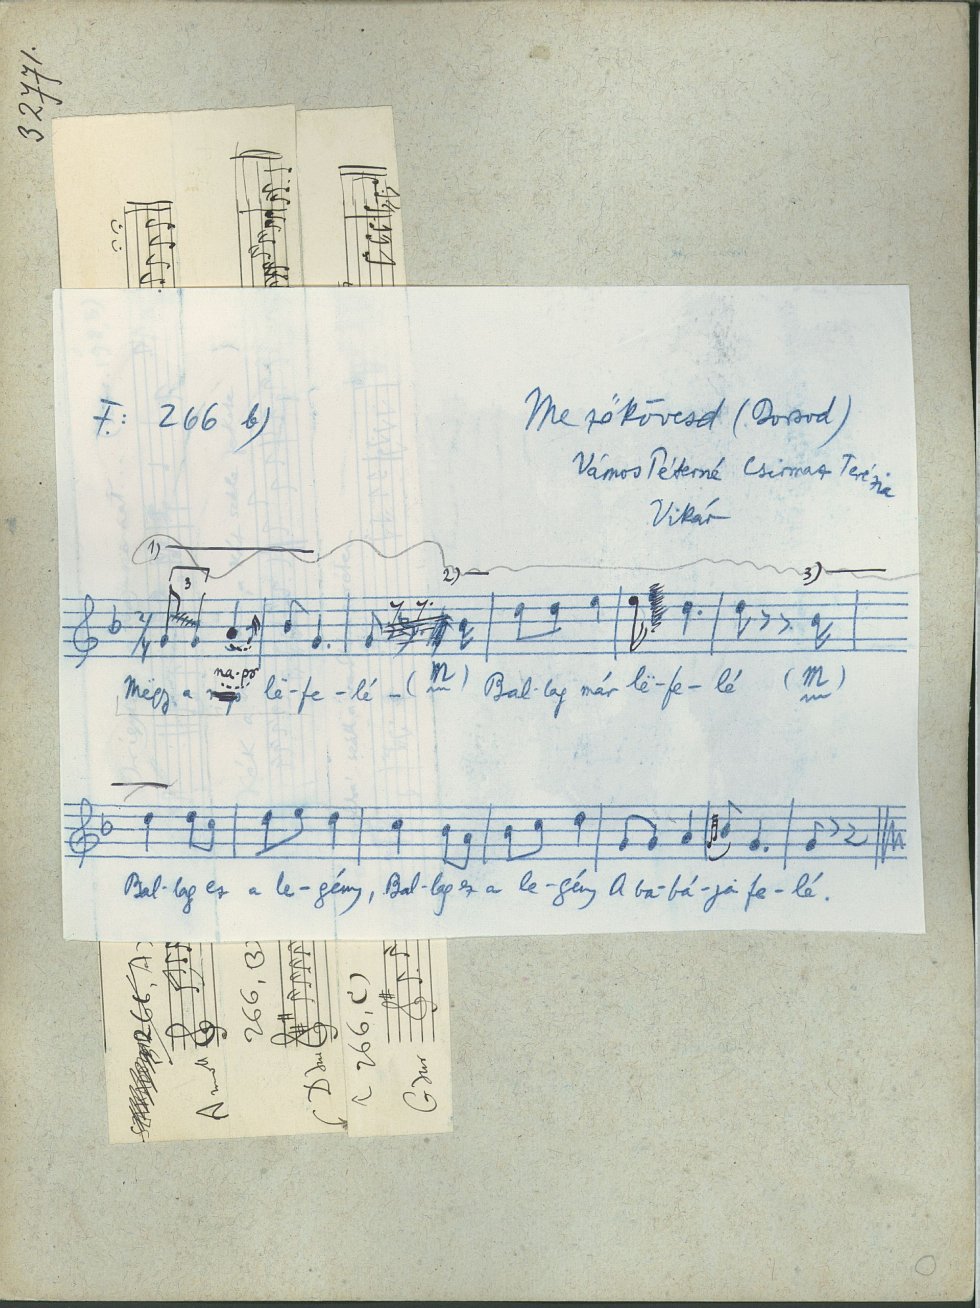 32771.
F: 266 b)
Mezőkövesd (Borsod)
Vámos Péterné Csirmaz Terézia
Vikár
1) 2) 3)
3
2/4
na-po
Mëgy a lë-fe-lé -(m) Bal-lag már lë-fe-lé (m)
Bal-lag ez a le-gény, Bal-lag ez a le-gény A ba-bá-ja fe-lé.
266, A)
A moll
266, B)
D dur
266, C)
G dur